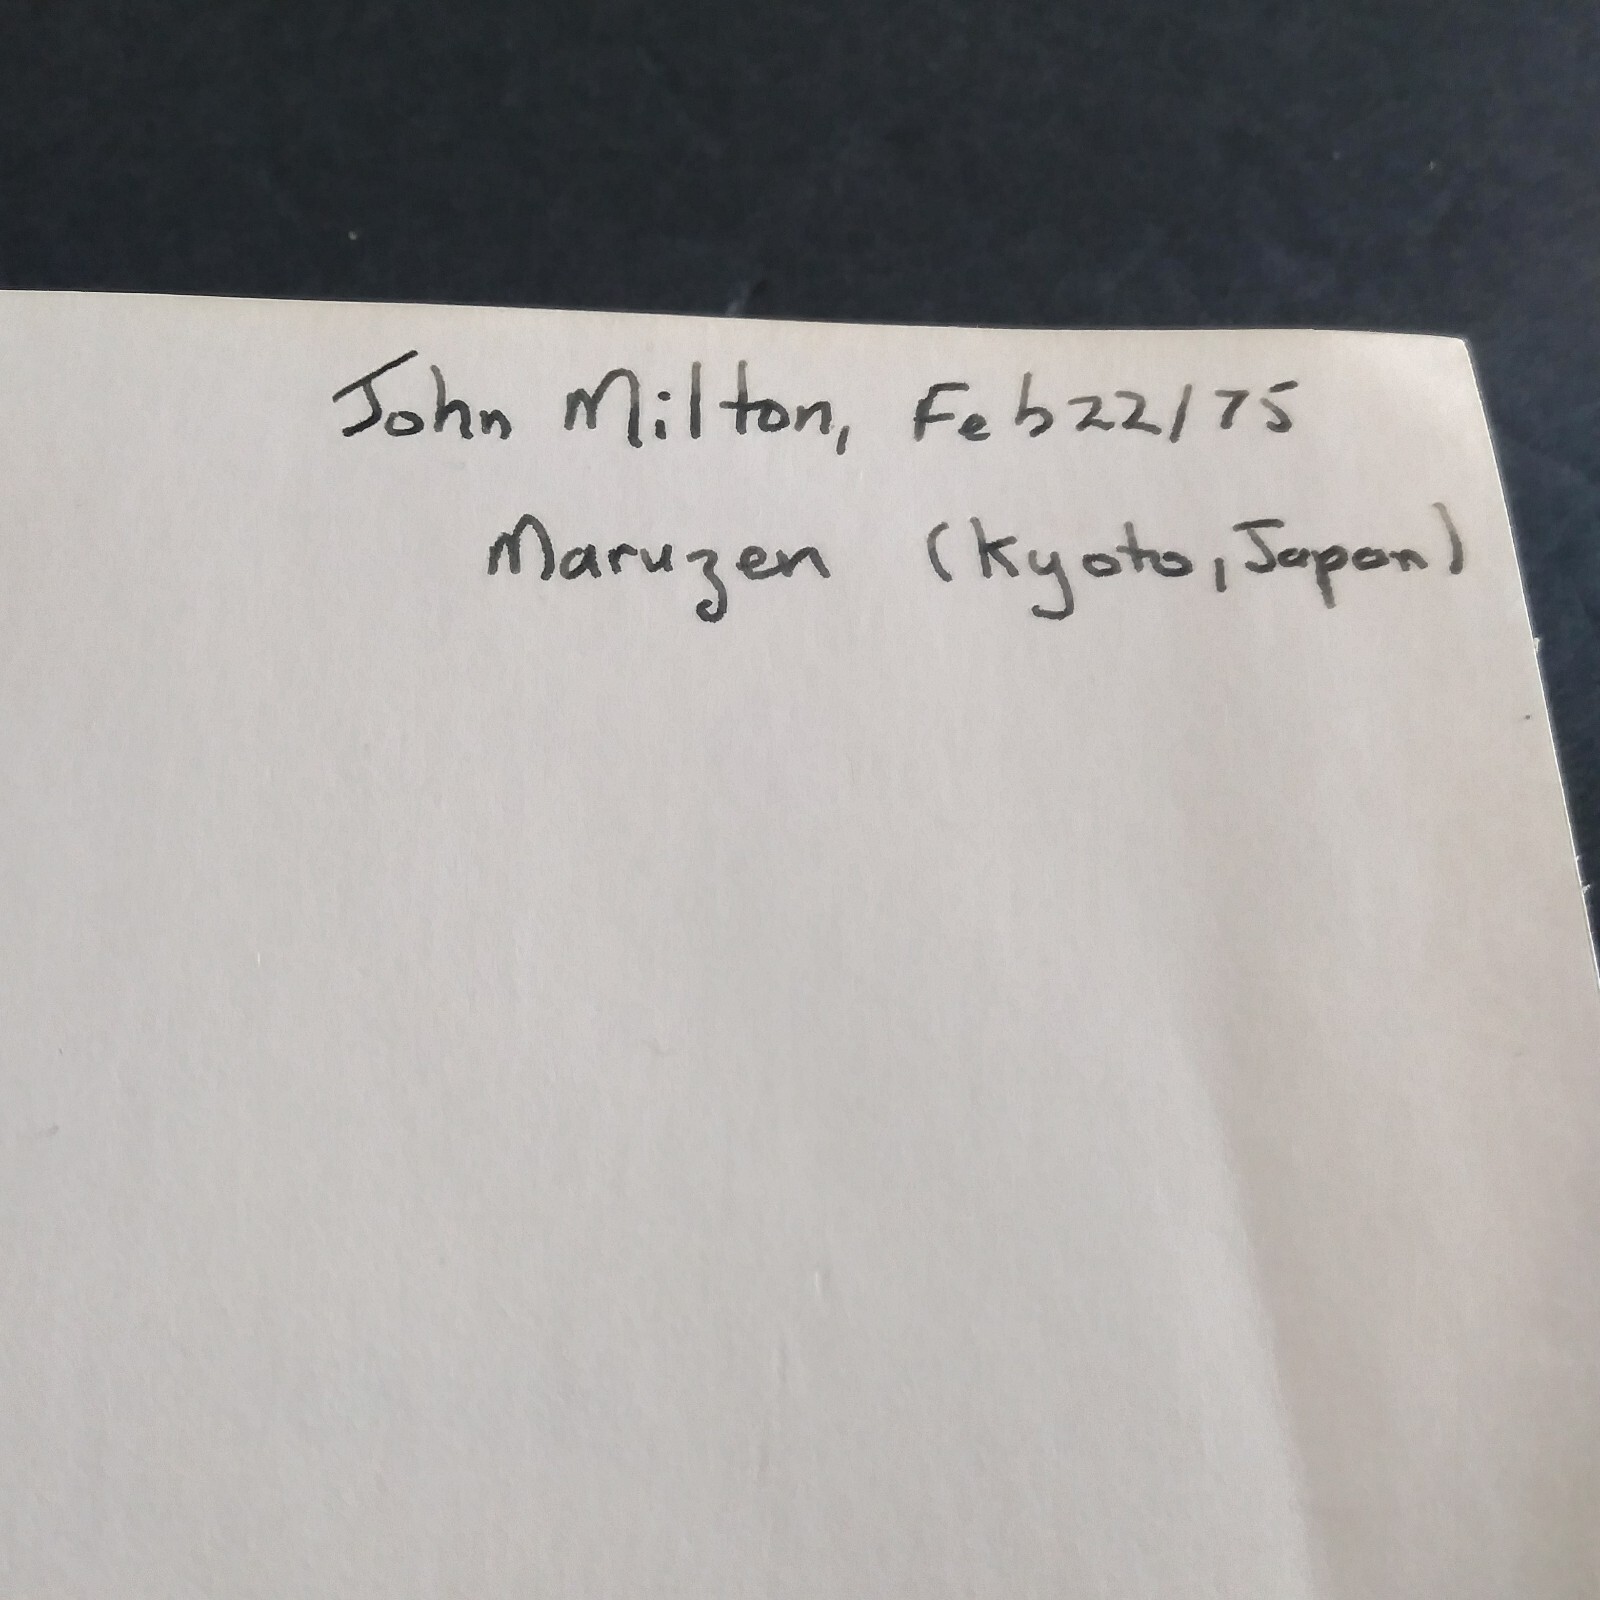 John Milton, Feb 22/75
Maruzen (Kyoto, Japan)